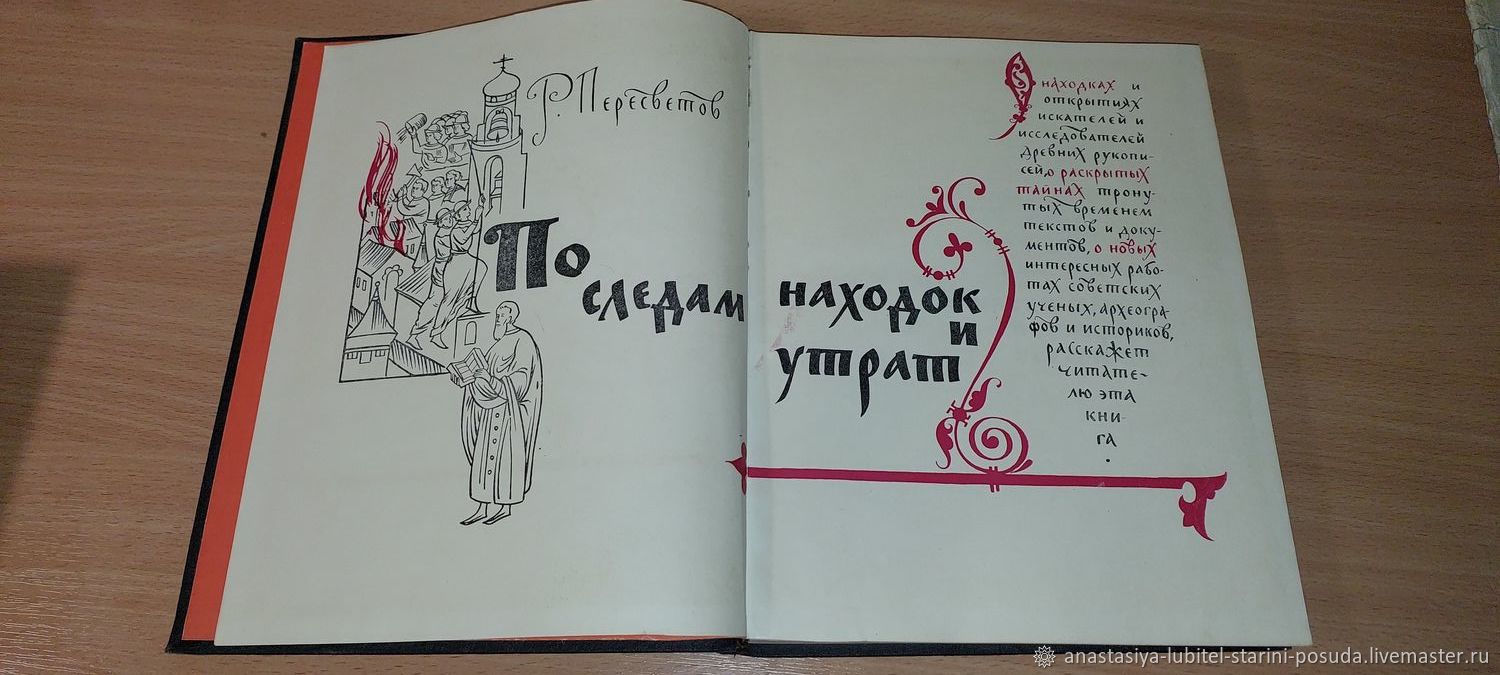 Р. Пересветов
По
следам
находок
и
утрат
О находках и
открытиях
искателей и
исследователей
древних рукопи-
сей, о раскрытых
тайнах трону-
тых временем
текстов и доку-
ментов, о новых
интересных рабо-
тах советских
ученых, археогра-
фов и историков,
расскажет
читате-
лю эта
кни-
га.
anastasiya-lubitel-starini-posuda.livemaster.ru